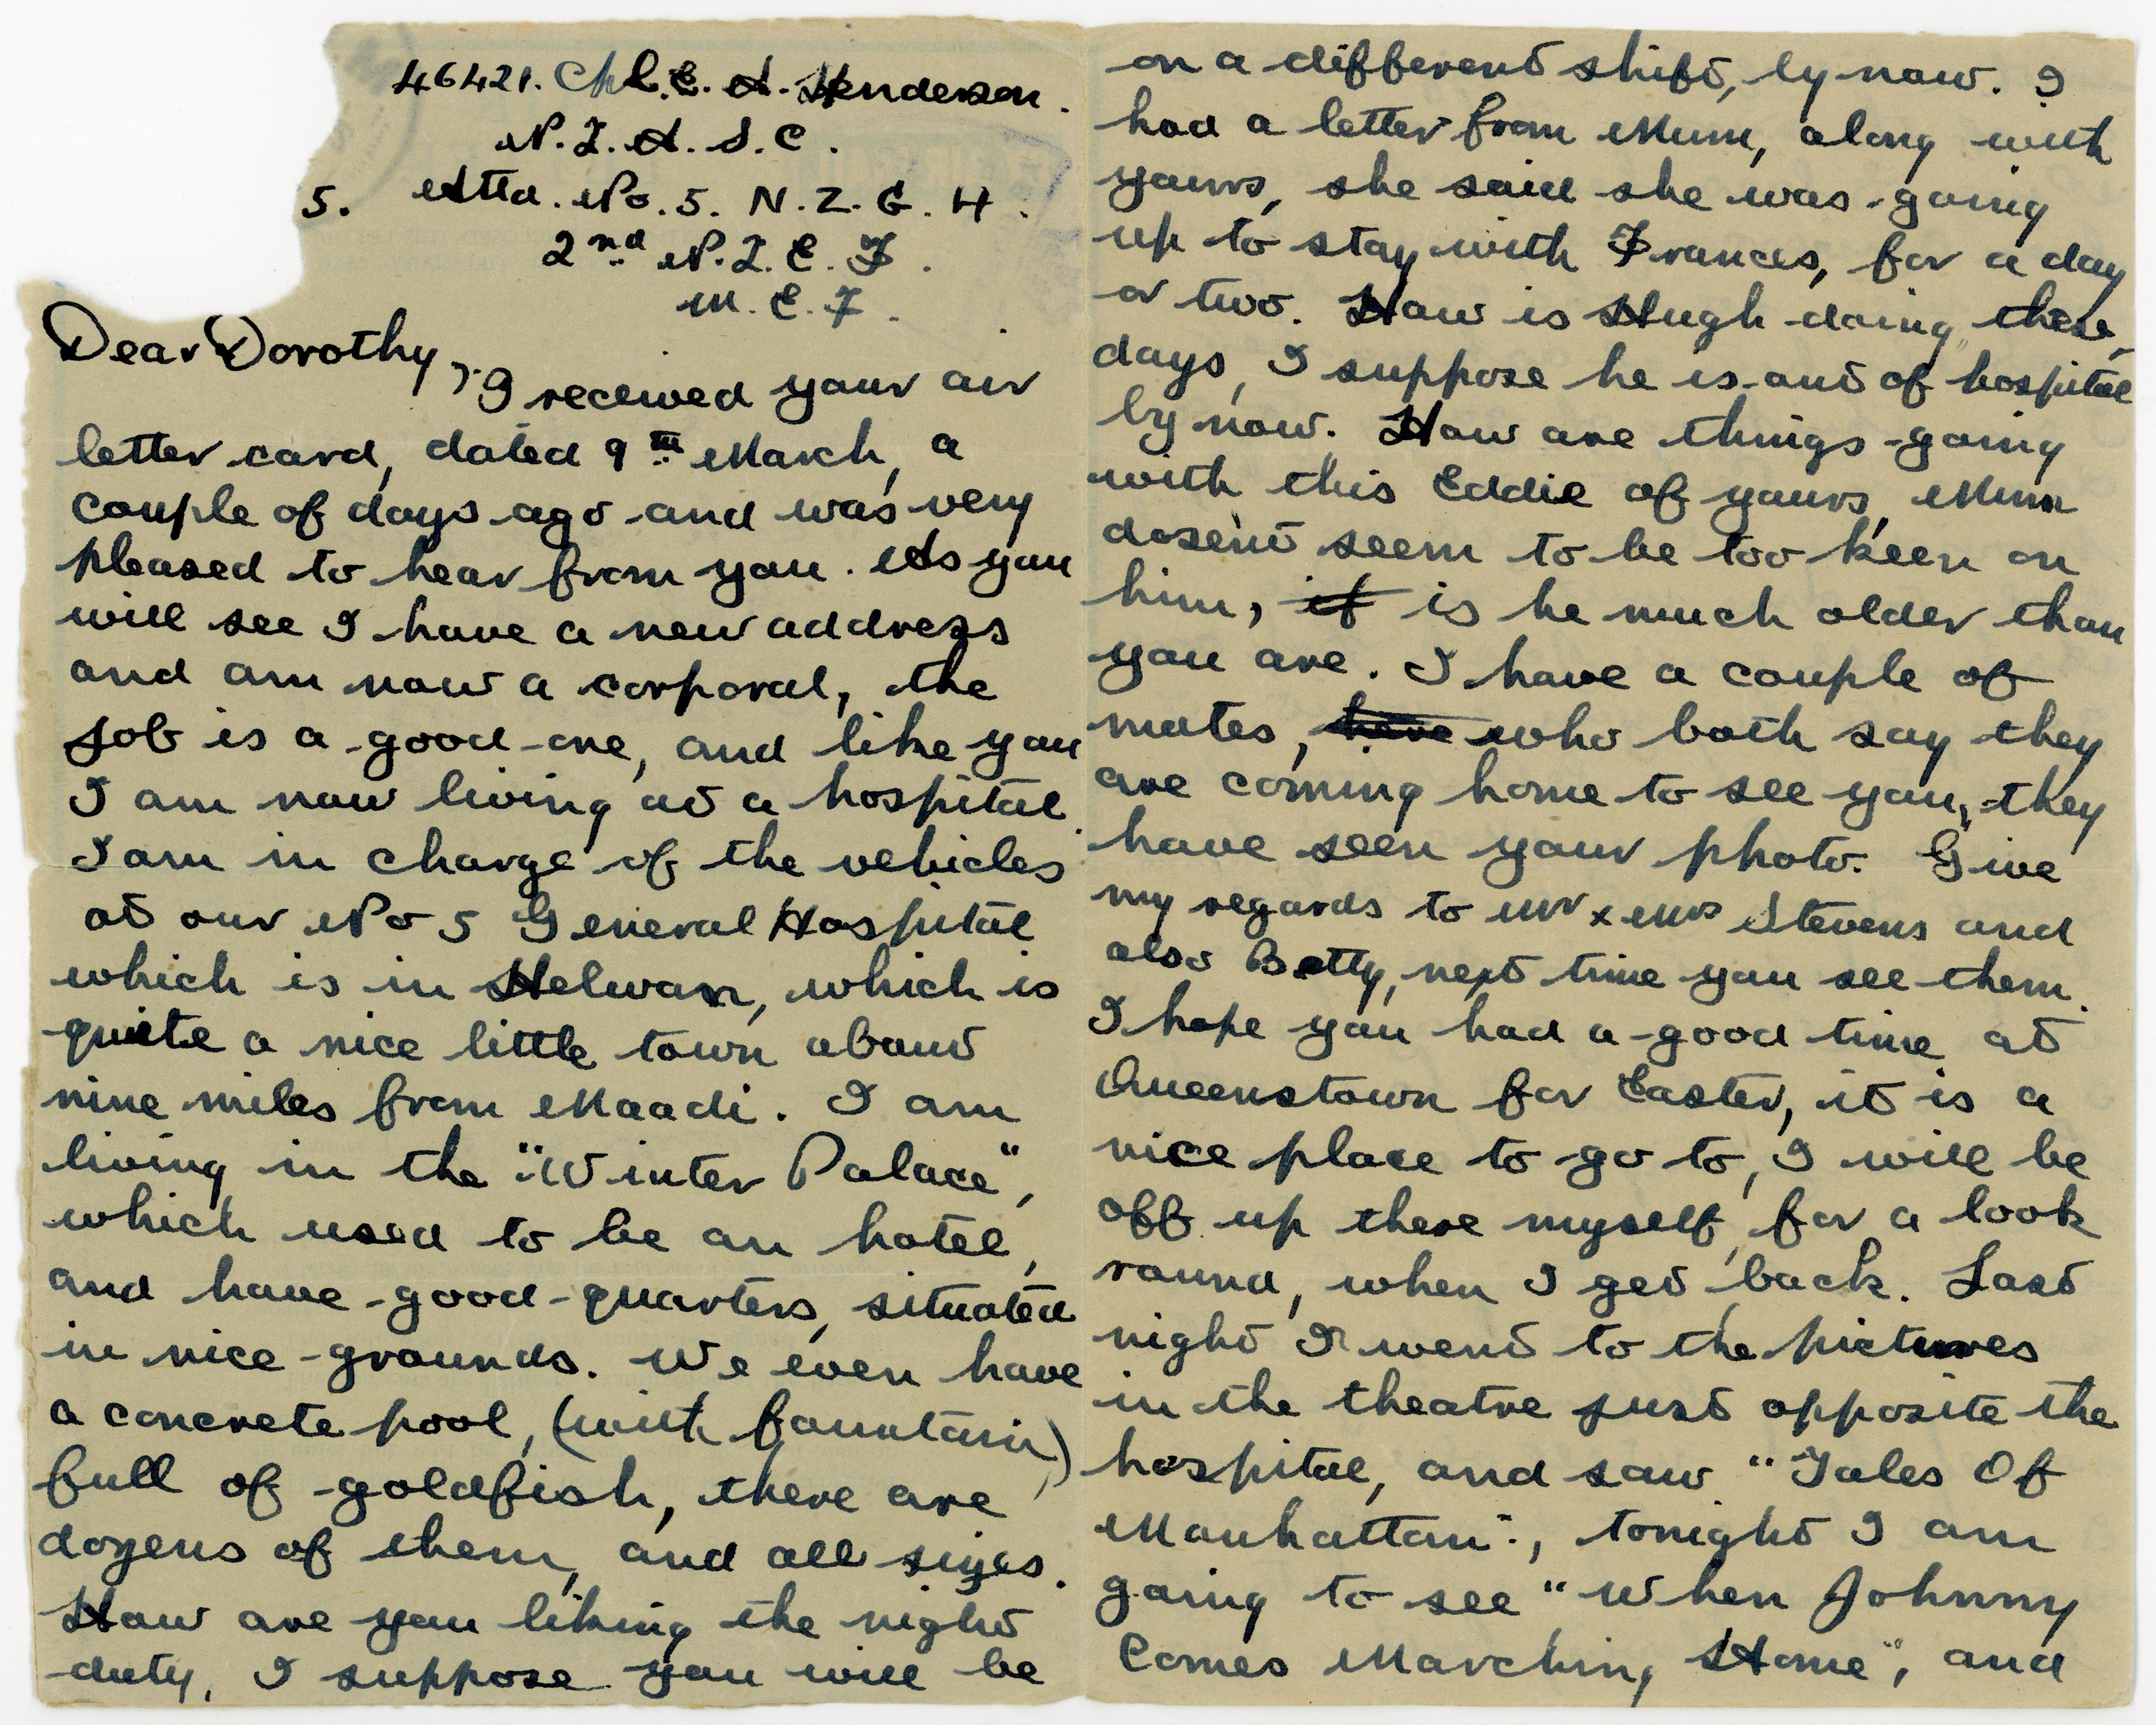 46421. Cpl. E. A. Henderson.
N.Z.A.S.C.
5. Attd. No. 5. N.Z.G.H.
2nd N.Z.E.F.
M.E.F.
Dear Dorothy,
I received your air
letter card, dated 9th March, a
couple of days ago and was very
pleased to hear from you. As you
will see I have a new address
and am now a corporal, the
job is a good one, and like you
I am now living at a hospital.
I am in charge of the vehicles
at our No 5 General Hospital
which is in Helwan, which is
quite a nice little town about
nine miles from Maadi. I am
living in the "Winter Palace",
which used to be an hotel,
and have good quarters, situated
in nice grounds. We even have
a concrete pool, (with fountain)
full of goldfish, there are
dozens of them, and all sizes.
How are you liking the night
duty, I suppose you will be
on a different shift, by now. I
had a letter from Mum, along with
yours, she said she was going
up to stay with Frances, for a day
or two. How is Hugh doing these
days, I suppose he is out of hospital
by now. How are things going
with this Eddie of yours, Mum
dosent seem to be too keen on
him, it is he much older than
you are. I have a couple of
mates, here who both say they
are coming home to see you, they
have seen your photo. Give
my regards to Mr & Mrs Stevens and
also Betty, next time you see them.
I hope you had a good time at
Queenstown for Easter, it is a
nice place to go to, I will be
off up there myself, for a look
round, when I get back. Last
night I went to the pictures
in the theatre just opposite the
hospital, and saw "Tales Of
Manhattan", tonight I am
going to see "When Johnny
Comes Marching Home", and